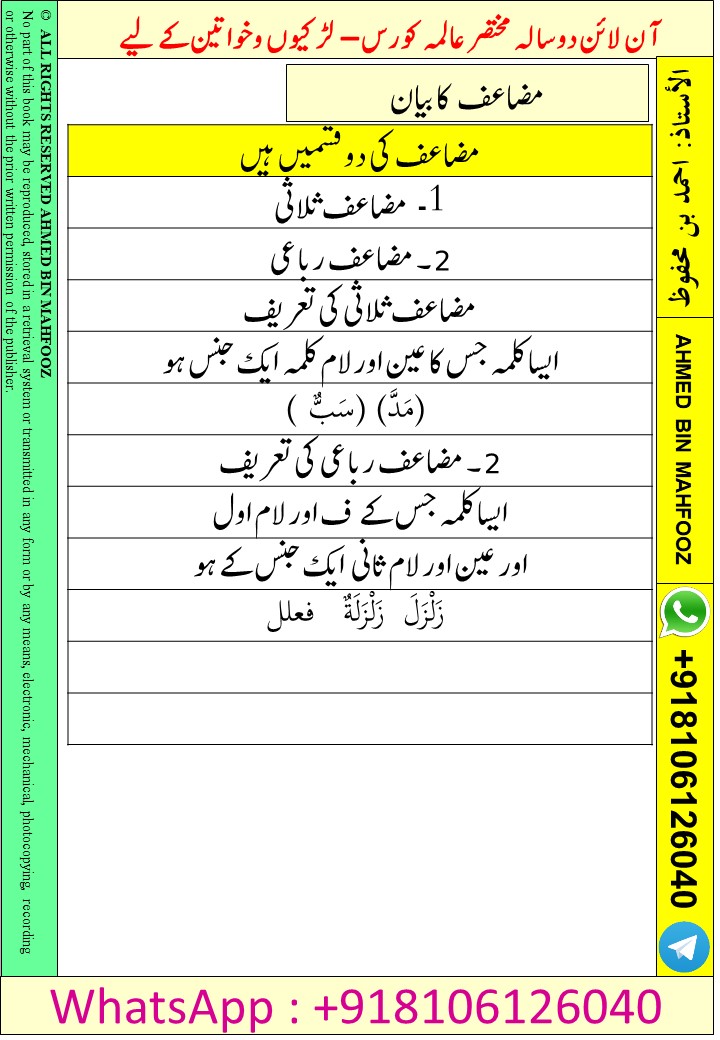 آن لائن دوسالہ مختصر عالمہ کورس– لڑکیوں وخواتین کے لیے
مضاعف کا بیان
مضاعف کی دو قسمیں ہیں
1۔ مضاعف ثلاثی
2۔ مضاعف رباعی
مضاعف ثلاثی کی تعریف
ایسا کلمہ جس کا عین اور لام کلمہ ایک جنس ہو
(مَدَّ) (سَبٌّ )
2۔ مضاعف رباعی کی تعریف
ایسا کلمہ جس کے ف اور لام اول
اور عین اور لام ثانی ایک جنس کے ہو
زَلْزَلَ زَلْزَلَةٌ فعلل
الأستاذ: احمد بن محفوظ
AHMED BIN MAHFOOZ
+918106126040
© ALL RIGHTS RESERVED AHMED BIN MAHFOOZ
No part of this book may be reproduced, stored in a retrieval system or transmitted in any form or by any means, electronic, mechanical, photocopying, recording
or otherwise without the prior written permission of the publisher.
WhatsApp : +918106126040